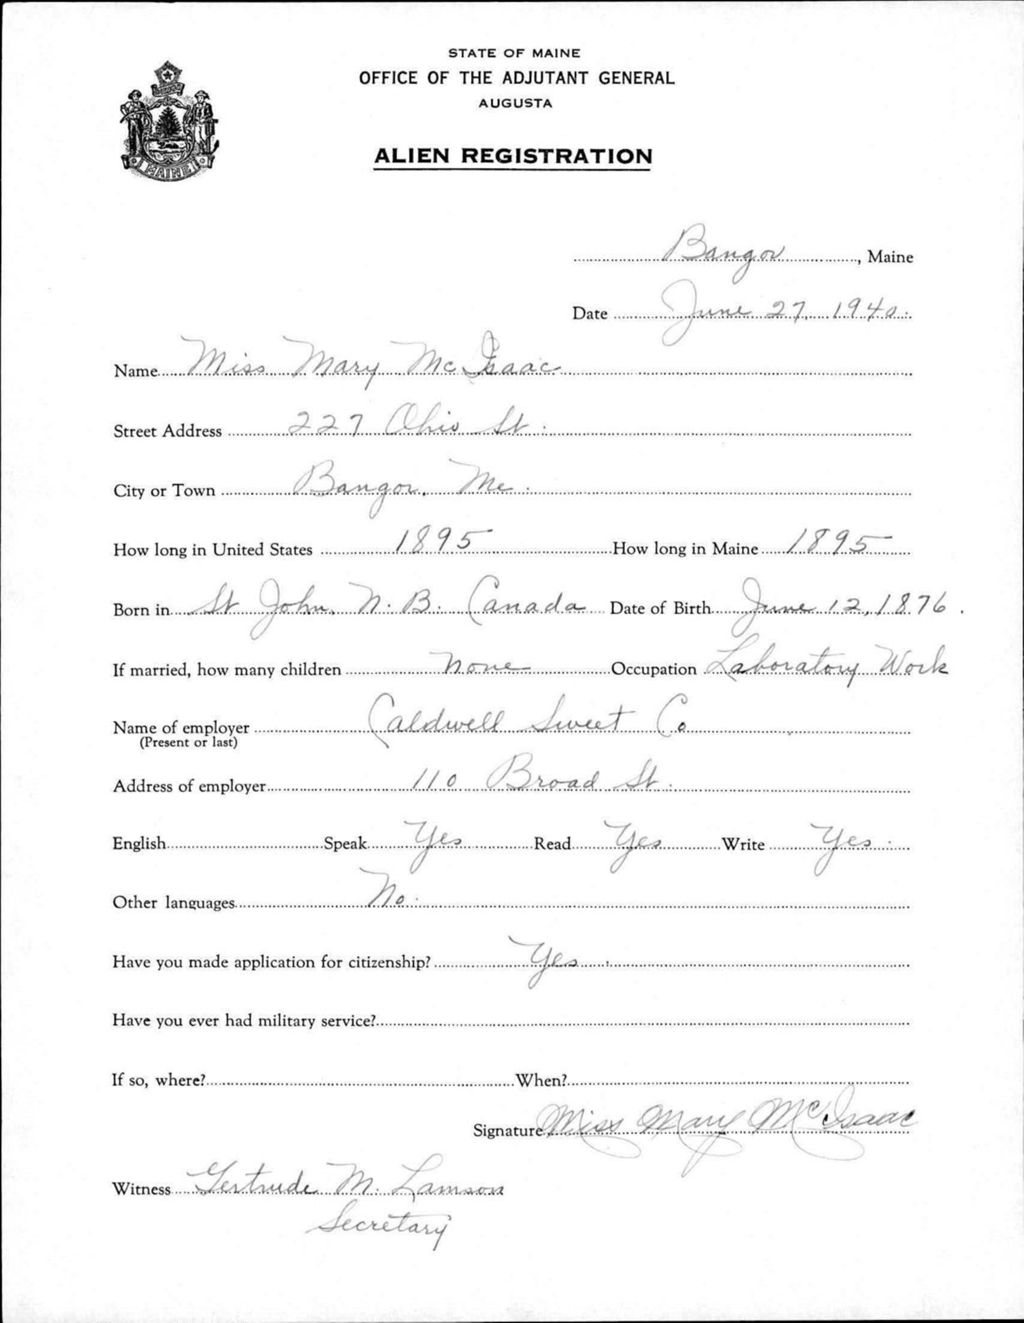 STATE OF MAINE
OFFICE OF THE ADJUTANT GENERAL
AUGUSTA
ALIEN REGISTRATION
MAINE
Bangor, Maine
Date June 27, 1940.
Name Miss Mary McIsaac
Street Address 227 Ohio St.
City or Town Bangor, Me.
How long in United States 1895 How long in Maine 1895
Born in St John, N.B. Canada Date of Birth June 12, 1876.
If married, how many children None Occupation Laboratory Work
Name of employer Caldwell Sweet Co
(Present or last)
Address of employer 110 Broad St.
English Speak Yes Read Yes Write Yes.
Other languages No.
Have you made application for citizenship? Yes
Have you ever had military service?
If so, where? When?
Signature Miss Mary McIsaac
Witness Gertrude M. Lamson
Secretary